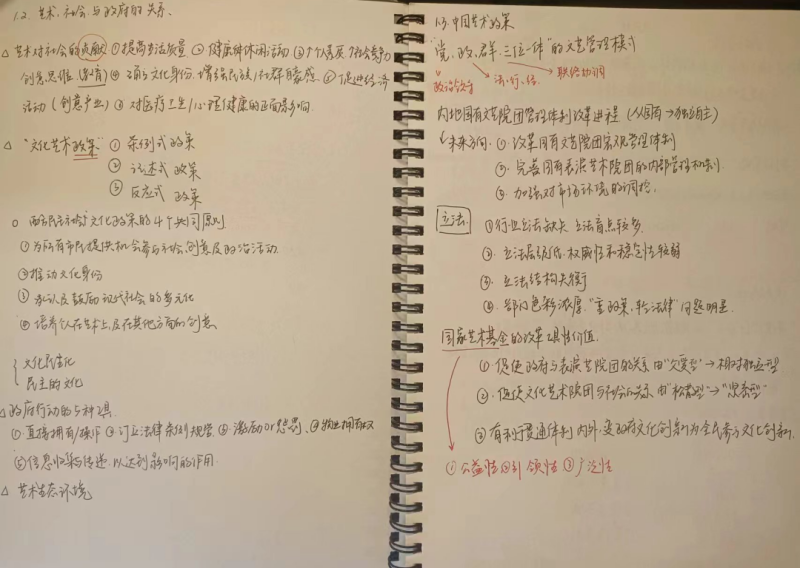 1.2. 艺术、社会与政府的关系.
△ 艺术对社会的贡献 ①提高生活质量 ②健康的休闲活动 ③个人发展
创意思维(教育) ④ 文化身份. 增强民族/社群 感 ⑤ 促进经济
活动(创意产业) ⑥ 对医疗卫生/心理健康的正面影响.
△ "文化艺术政策" ① 条例式政策
② 论述式政策
③ 反应式政策
○ 西方民主社会文化政策的4个共同原则
①为所有市民提供机会参与社会创意及政治活动.
②推动文化身份
③ 承认及鼓励现代社会的多元化
④ 培养个人在艺术上及在其他方面的创意
{ 文化民主化
民主的文化
△政府行动的5种工具
①.直接拥有/操作 ②订立法律条例规管. ③ 激励or惩罚. ④物业拥有权
⑤信息收集与传递. 以达到影响的作用.
△ 艺术生态环境
1.3 中国艺术政策
"党、政、群、三位一体"的文艺管理模式
政治领导 法、行、经 联络协调
内地国有文艺院团管理体制改革进程 (从国有→独立自主)
未来方向. ① 改革国有文艺院团宏观管理体制
②. 完善国有表演艺术院团的内部管理机制.
③. 加强对市场环境的调控.
立法 ①行业立法缺失 立法盲点较多.
②. 立法层级低. 权威性和稳定性较弱
③. 立法结构失衡
④. 部门色彩浓厚. "重政策, 轻法律"问题明显.
国家艺术基金的改革工具性价值.
①.促使政府与表演艺院团的关系由"父爱型"→相对独立型"
②. 促使文化艺术院团与社会的关系 由"松散型"→"紧密型"
③ 有利于贯通体制内外. 变政府文化创新为全民参与文化创新.
①公益性 ②引领性 ③广泛性